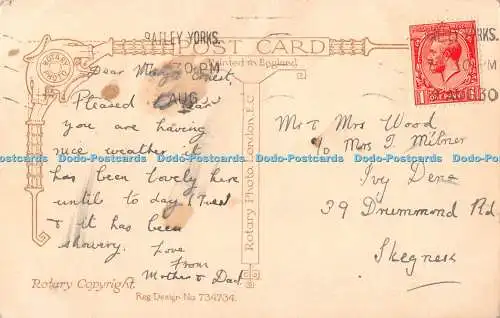 BATLEY YORKS.
POST CARD
Printed in England
ROTARY PHOTO
30 PM
AUG
YORKS.
30
Dear Mary & Ernest,
Pleased
you are having
nice weather it
has been lovely here
until to day (Tues)
& it has been
showery. Love
From
Mother & Dad
Mr & Mrs Wood
c/o Mrs T. Milner
Ivy Dene
39 Drummond Rd.
Skegness
Rotary Photo, London, E.C.
Rotary Copyright.
Reg. Design No 734734.
Dodo-Postcards Dodo-Postcards Dodo-Postcards Dodo-Postcards Dodo-Postcards